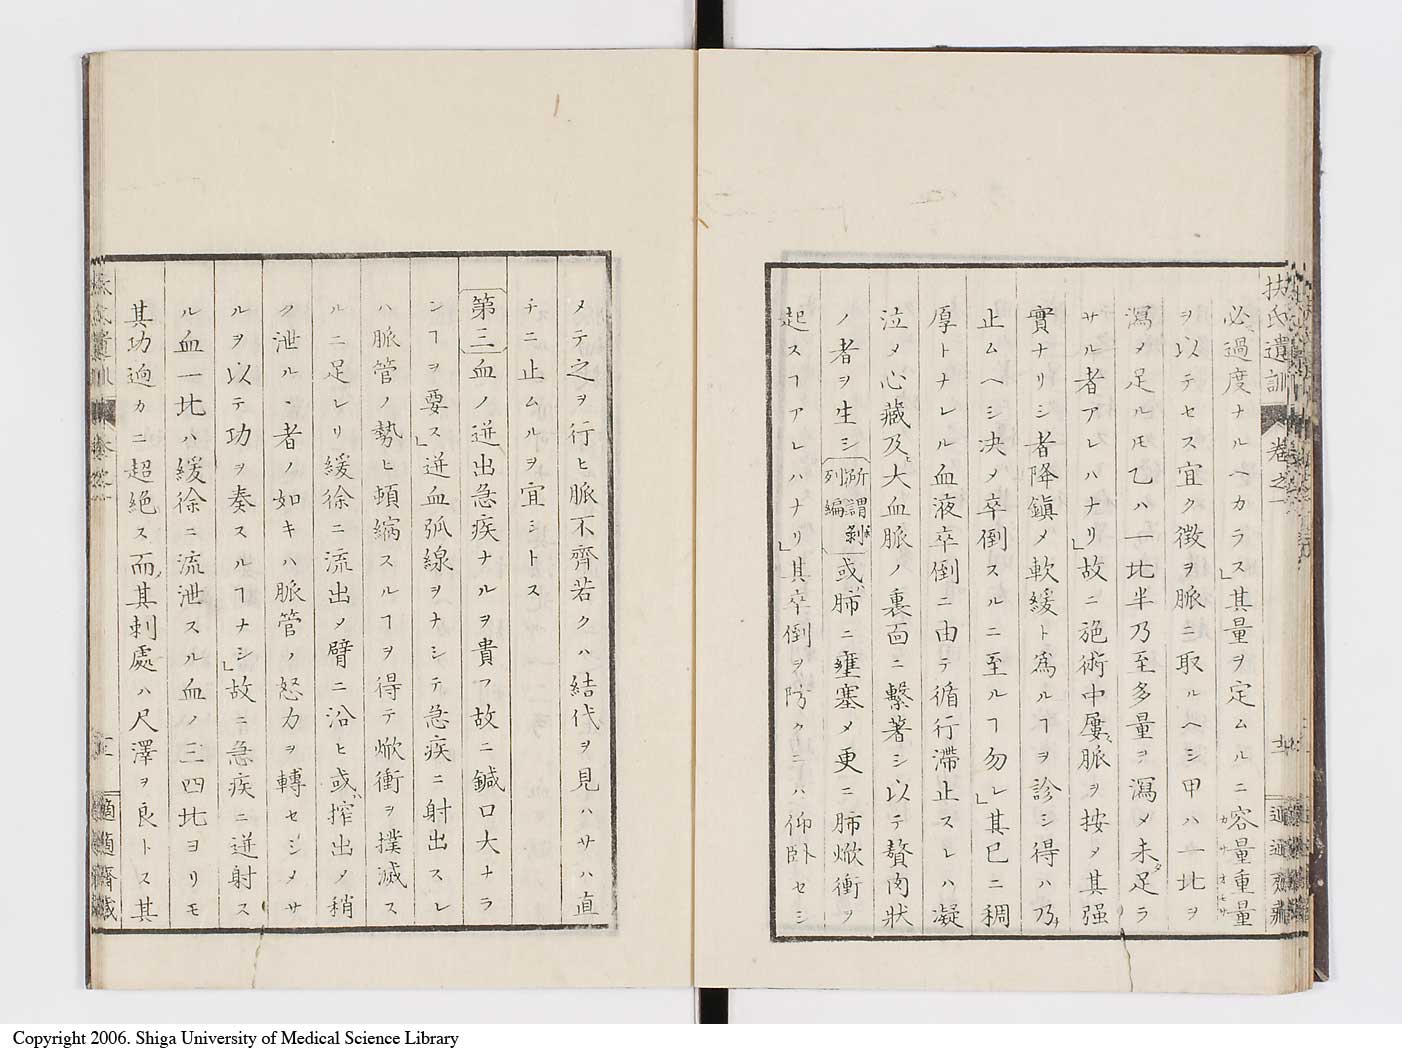 扶氏遺訓 卷之一
必過度ナルヘカラス」其量ヲ定ムルニ容量重量
ヲ以テセス宜ク徴ヲ脈ニ取ルヘシ甲ハ一ヒヲ
瀉メ足ルモ乙ハ一ヒ半乃至多量ヲ瀉メ未タ足ラ
サル者アレハナリ」故ニ施術中屢脈ヲ按メ其强
實ナリシ者降鎭メ軟緩ト爲ルヿヲ診シ得ハ乃
止ムヘシ决メ卒倒スルニ至ルヿ勿レ」其已ニ稠
厚トナレル血液卒倒ニ由テ循行滯止スレハ凝
泣メ心藏及大血脈ノ裏面ニ繫著シ以テ贅肉狀
ノ者ヲ生シ所謂剝列編或肺ニ壅塞メ更ニ肺焮衝ヲ
起スヿアレハナリ」其卒倒ヲ防クニハ仰臥セシ
メテ之ヲ行ヒ脈不齊若クハ結代ヲ見ハサハ直
チニ止ムルヲ宜シトス
第三血ノ迸出急疾ナルヲ貴フ故ニ鍼口大ナラ
シヿヲ要ス」迸血弧線ヲナシテ急疾ニ射出スレ
ハ脈管ノ勢ヒ頓縮スルヿヲ得テ焮衝ヲ撲滅ス
ルニ足レリ緩徐ニ流出メ臂ニ沿ヒ或搾出メ稍
ク泄ルヽ者ノ如キハ脈管ノ怒力ヲ轉セシメサ
ルヲ以テ功ヲ奏スルヿナシ」故ニ急疾ニ迸射ス
ル血一ヒハ緩徐ニ流泄スル血ノ三四ヒヨリモ
其功逈カニ超絶ス而其刺處ハ尺澤ヲ良トス其
適適齊藏
Copyright 2006. Shiga University of Medical Science Library